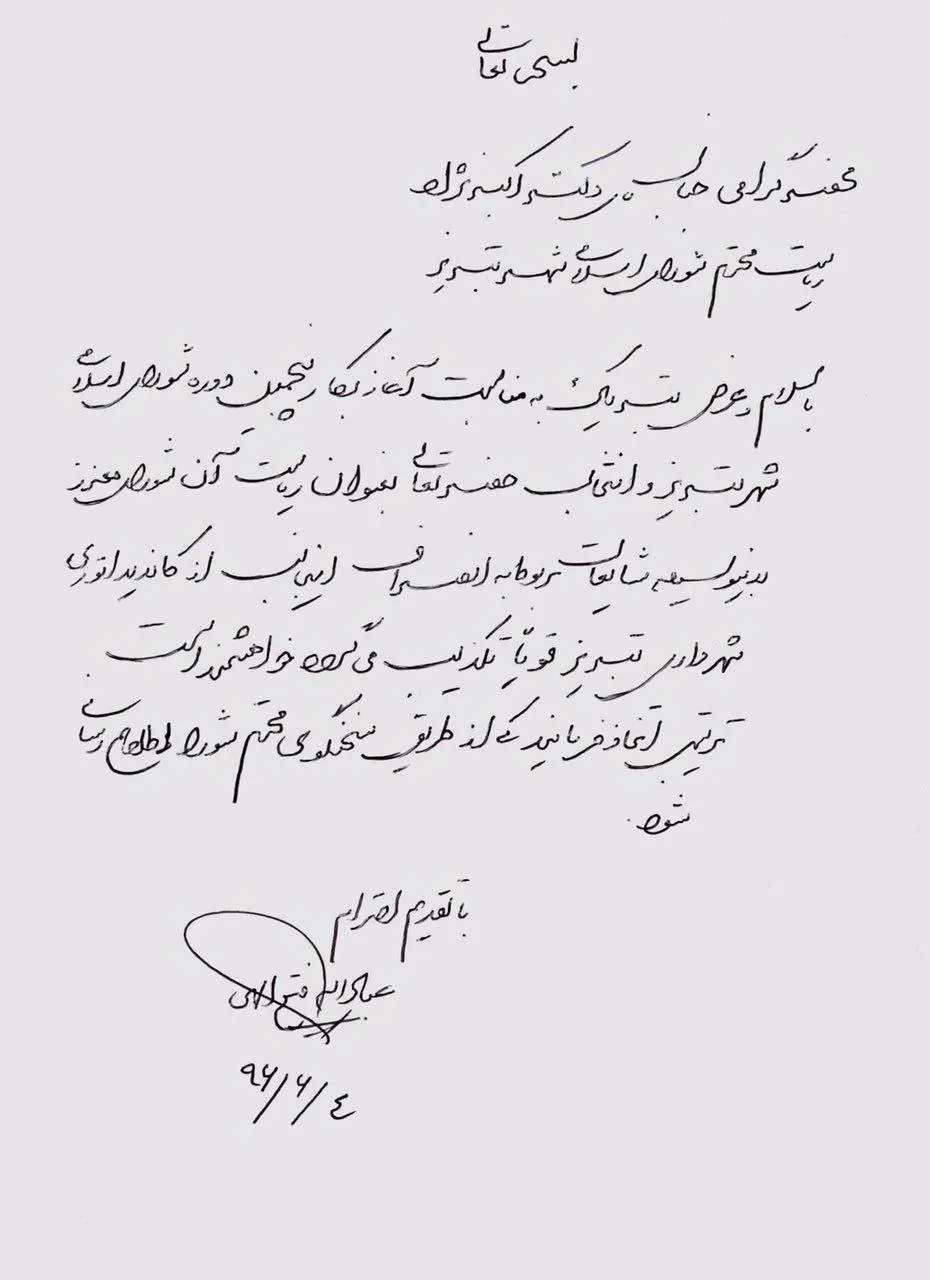 بسمه تعالی
محضر گرامی جناب آقای دکتر اکبر نژاد
ریاست محترم شورای اسلامی شهر تبریز
با سلام و عرض تبریک به مناسبت آغاز بکار پنجمین دوره شورای اسلامی
شهر تبریز و انتخاب حضرتعالی بعنوان ریاست آن شورای معزز
بدینوسیله شایعات مربوط به انصراف اینجانب از کاندیداتوری
شهرداری تبریز قویاً تکذیب می گردد خواهشمند است
ترتیبی اتخاذ فرمائید که از طریق سخنگوی محترم شورا اطلاع رسانی
شود.
با تقدیم احترام
عبدالله فتح الهی
۹۶/۶/٤